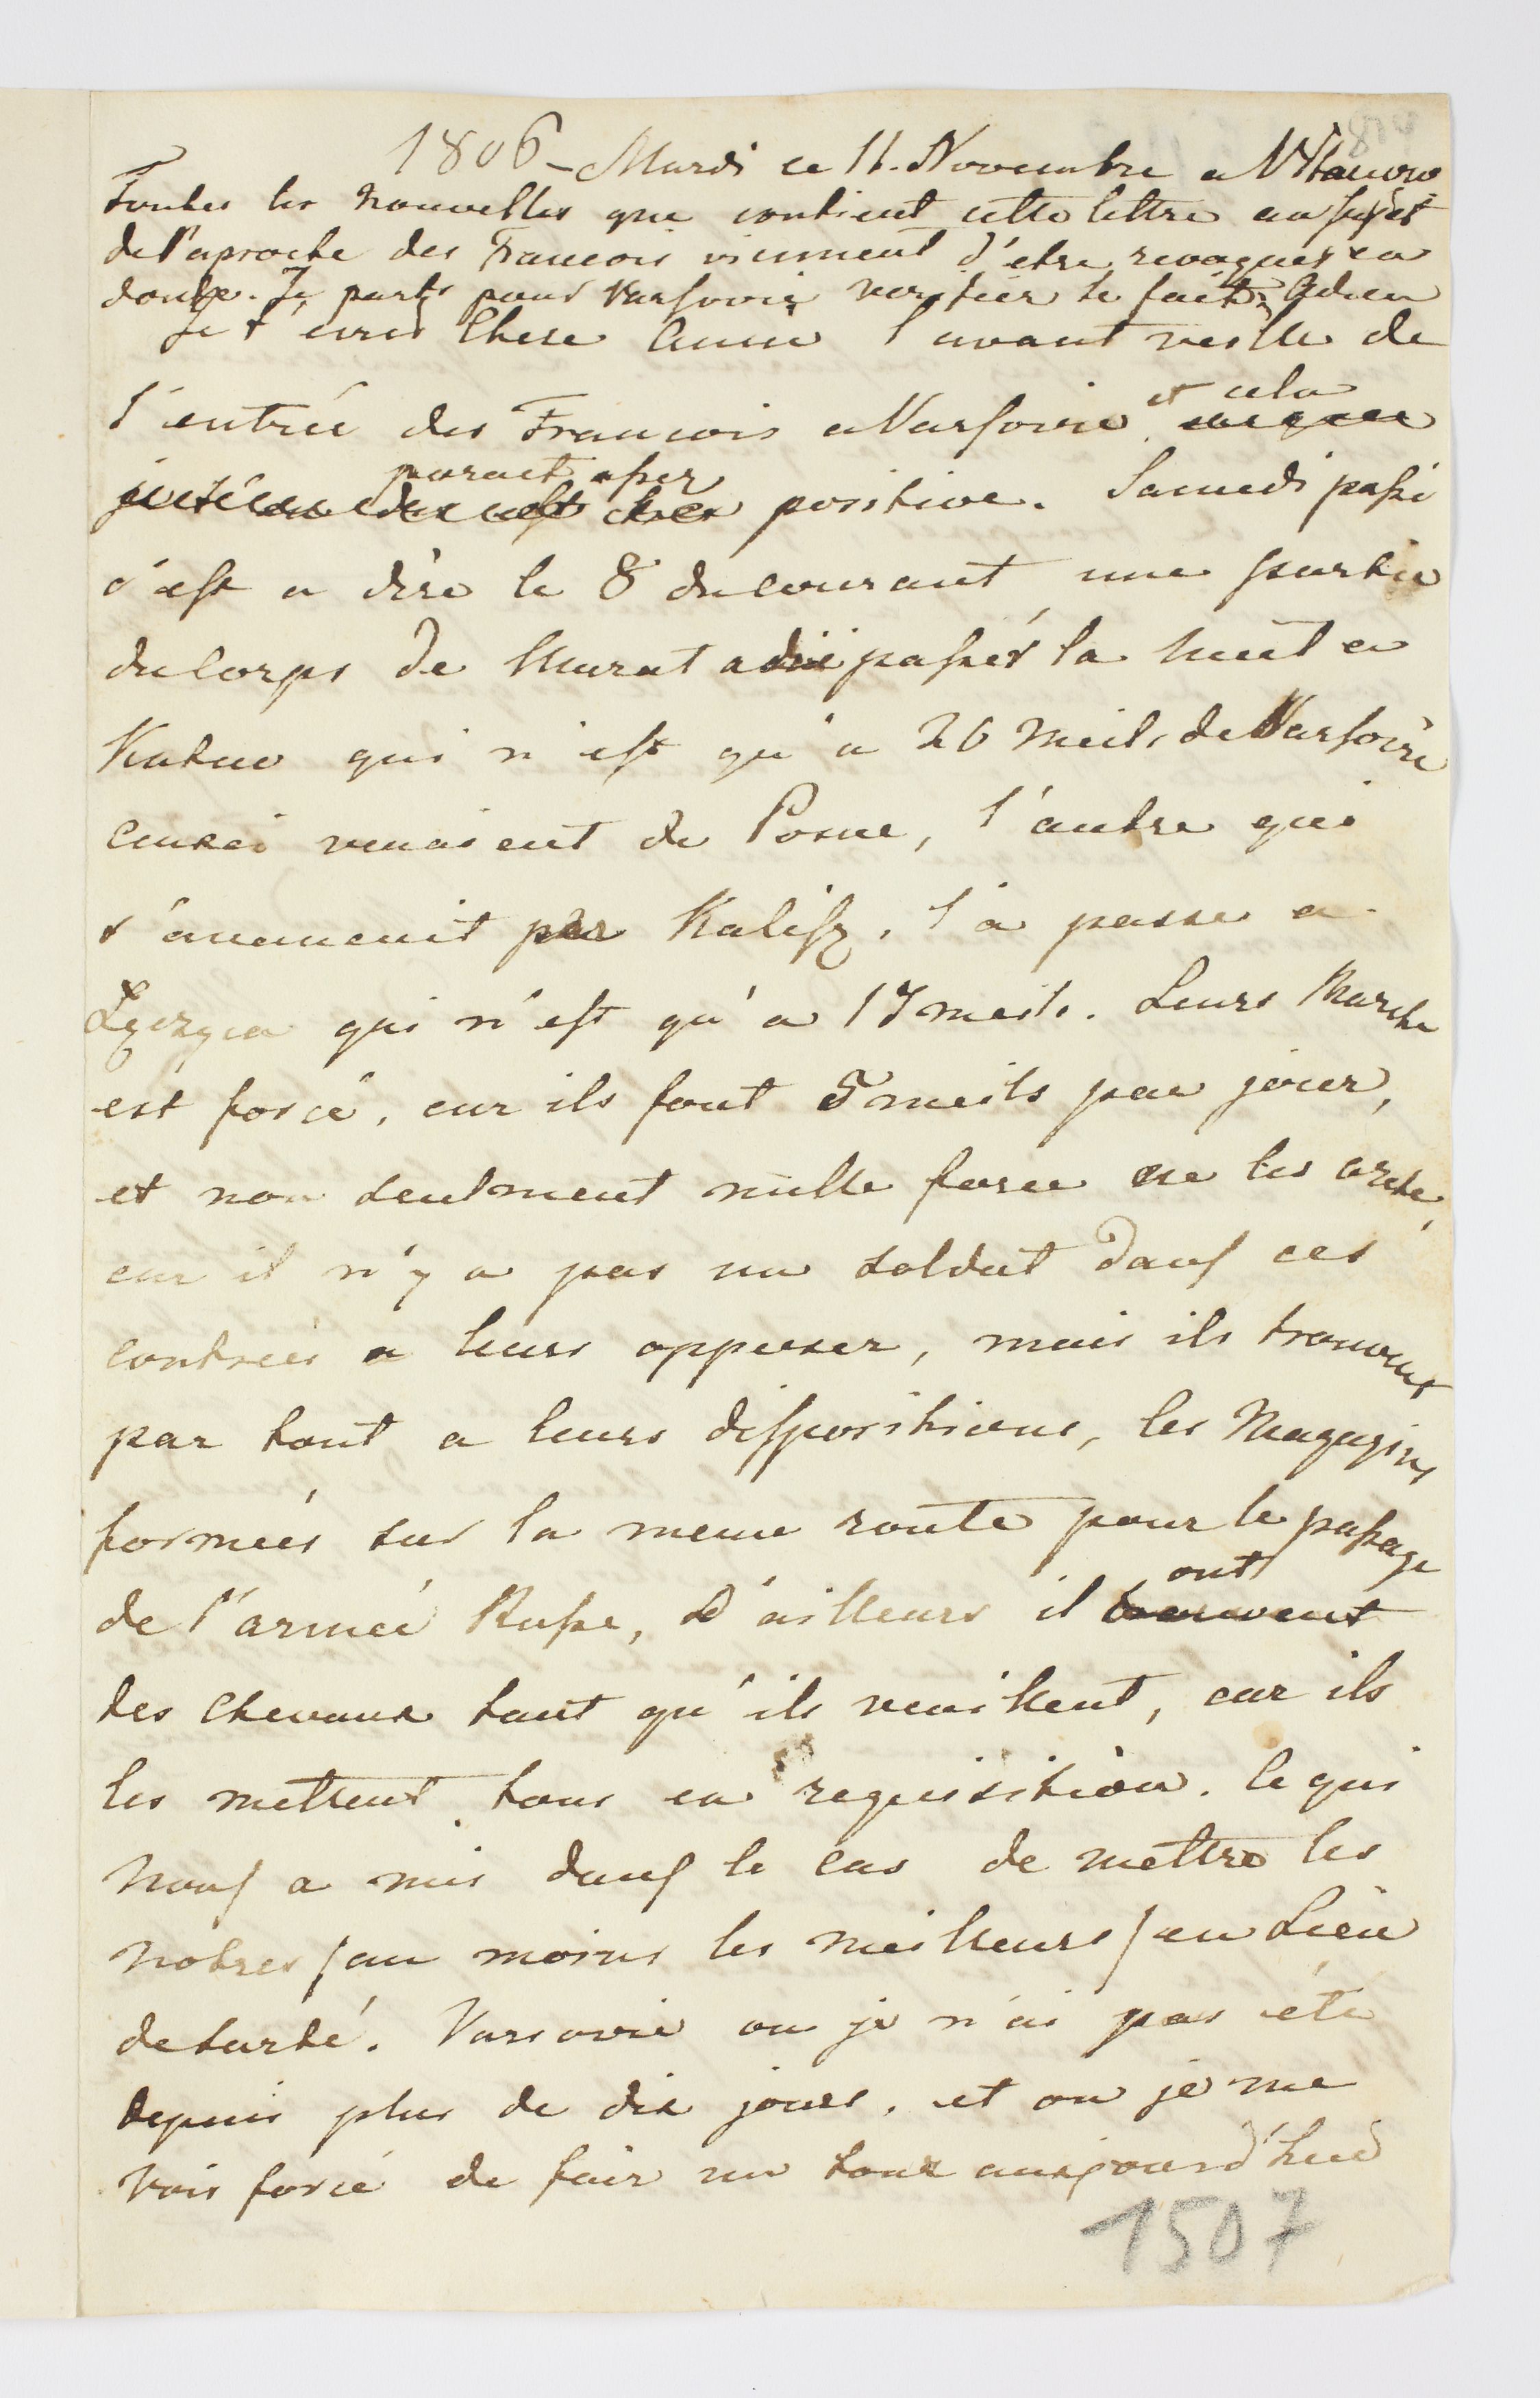 1806 – Mardi ce 11. Novembre a
Toutes les nouvelles que contient cette lettre au sujet
de l'aproche des Francois viennent d'etre revoquer en
doute. Je parts pour Varsovie verifier le fait. Adieu
Je t'ecris Chere Amie l'avant veille de
l'entrée des Francois a Varsovie et cela
parait assez positive. Samedi passé
c'est a dire le 8 du courant une partie
du Corps de Murat a dû passér la nuit a
Kutno qui n'est qu'a 20 meils de Varsovie
ceuxci venoient de Posne, l'autre qui
s'avancoit par Kalisz, l'a passe a
qui n'est qu'a 17 meils. Leurs Marche
est forcé, car ils font 5 meils par jour,
et non seulment nulle force ne les arete,
car il n'y a pas un soldat dans ces
contreés a leurs opposer, mais ils trouvent
par tout a leurs dispositions, les Magazins
formées sur la meme route pour le passage
de l'armeé Russe, D'ailleurs il ont trouvent
des Chevaux tant qu'ils veuillent, car ils
les mettent tous en requisition. Ce qui
nous a mis dans le cas de mettre les
notres / au moins les meilleurs / en Lieu
de surté. Varsovie ou je n'ai pas été
depuis plus de dix jours, et ou je me
vois forcé de fair un tour aujourd'hui
1507